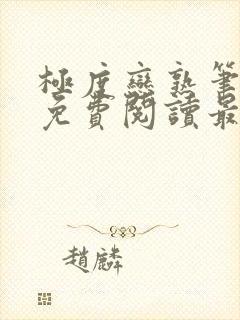 極度戀熟筆
免費閱讀最
趙麟